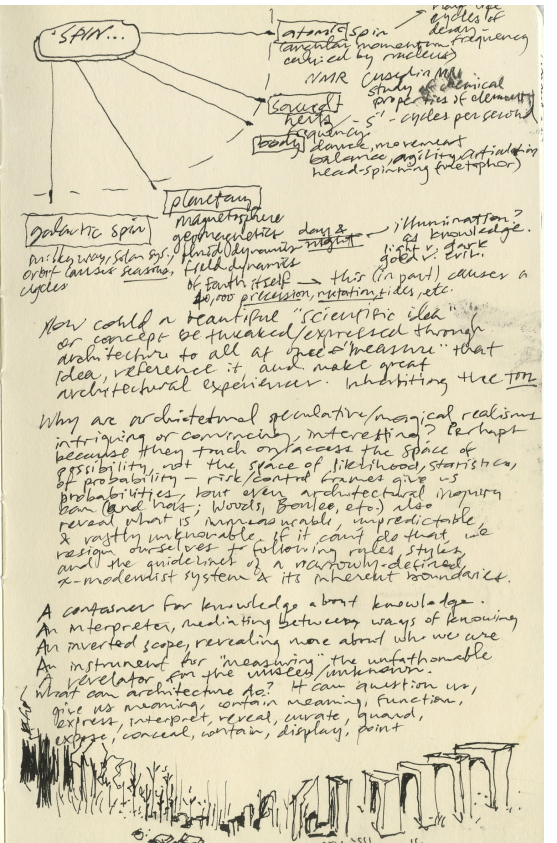 'SPIN...'
atomic spin
cycles of
decay -
(angular momentum frequency
carried by nucleus)
NMR (used in
study of chemical
properties of elements
sound
hertz / - s⁻¹ - cycles per second
frequency
body dance, movement
balance, agility, articulation
head-spinning (metaphor)
planetary
magnetosphere
geomagnetics
fluid dynamics
field dynamics
of Earth itself → this (in part) causes a
40,000 precession, nutation, tides, etc.
day & night
illumination?
as knowledge.
light v. dark
good v. evil.
galactic spin
milky way, solar sys.
orbit causes seasons,
cycles
How could a beautiful "scientific idea"
or concept be tweaked/expressed through
architecture to all at once "measure" that
idea, reference it and make great
architectural experience. Inhabiting the TOOL
Why are architectural speculative/magical realisms
intriguing or convincing, interesting? Perhaps
because they touch on/access the space of
possibility, not the space of likelihood, statistics,
of probability - risk/control frames give us
probabilities, but even architectural inquiry
can (and has; Woods, Boullee, etc.) also
reveal what is immeasurable, unpredictable,
& vastly unknowable. if it can't do that, we
resign ourselves to following rules, styles,
and the guidelines of a narrowly-defined
x-modernist system & its inherent boundaries.
A container for knowledge about knowledge.
An interpreter, mediating between ways of knowing
An inverted scope, revealing more about who we are
An instrument for "measuring" the unfathomable
A revelator for the unseen/unknown.
What can architecture do? It can question us,
give us meaning, contain meaning, function,
express, interpret, reveal, curate, guard,
expose, conceal, contain, display, point